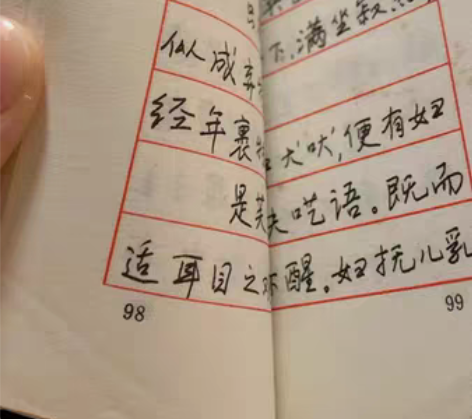 似成
经年裹
是芙
适耳目之
98
下,满坐寂
犬吠,便有妇
夫呓语。既而
醒。妇抚儿乳
99